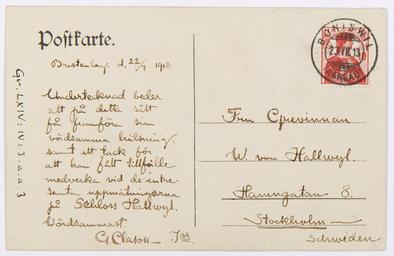 Postkarte.
Brestenberg. d. 22/7 1913.
Undertecknad beder
att på detta sätt
få framföra sin
vördsamma hälsning,
samt ett tack för
att han fått tillfälle
medverka vid de intres-
santa uppmätningarna
på Schloss Hallwyl.
Vördsammast.
G. Clason
Gr: LXIV: IV: 3. a. a. 3
BONISWIL
AARGAU
Fru Grevinnan
W. von Hallwyl.
Hamngatan 8.
Stockholm
Schweden